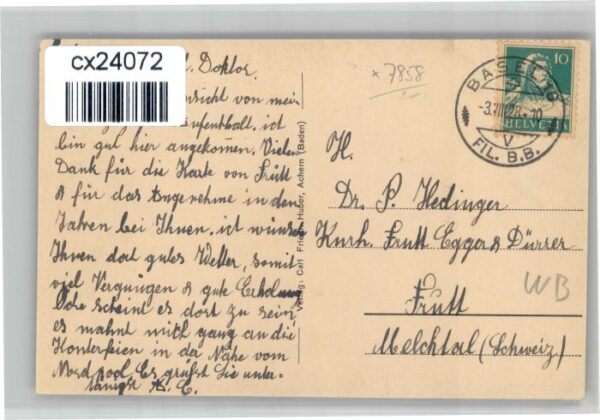 cx24072
l. Doktor.
nsicht von mei-
ufenthalt. ich
bin gut hier angekommen. Vielen
Dank für die Karte von Frutt
& für das Angenehme in den
Jahren bei Ihnen. ich wünsche
Ihnen doch gutes Wetter, somit
viel Vergnügen & gute Erholung
scheint es dort zu sein
es mahnt mich ganz an die
Konterfeien in der Nähe vom
Nordpool. Es grüßt Sie unter-
Verlag: Carl Friedr. Huber, Achern (Baden)
x 7858
BASEL 10
-3.VIII.28.-10
V
FIL. B.B.
10
HELVETIA
H.
Dr. P. Hedinger
Kurh. Frutt Egger & Dürrer
Frutt
Melchtal (Schweiz)
WB